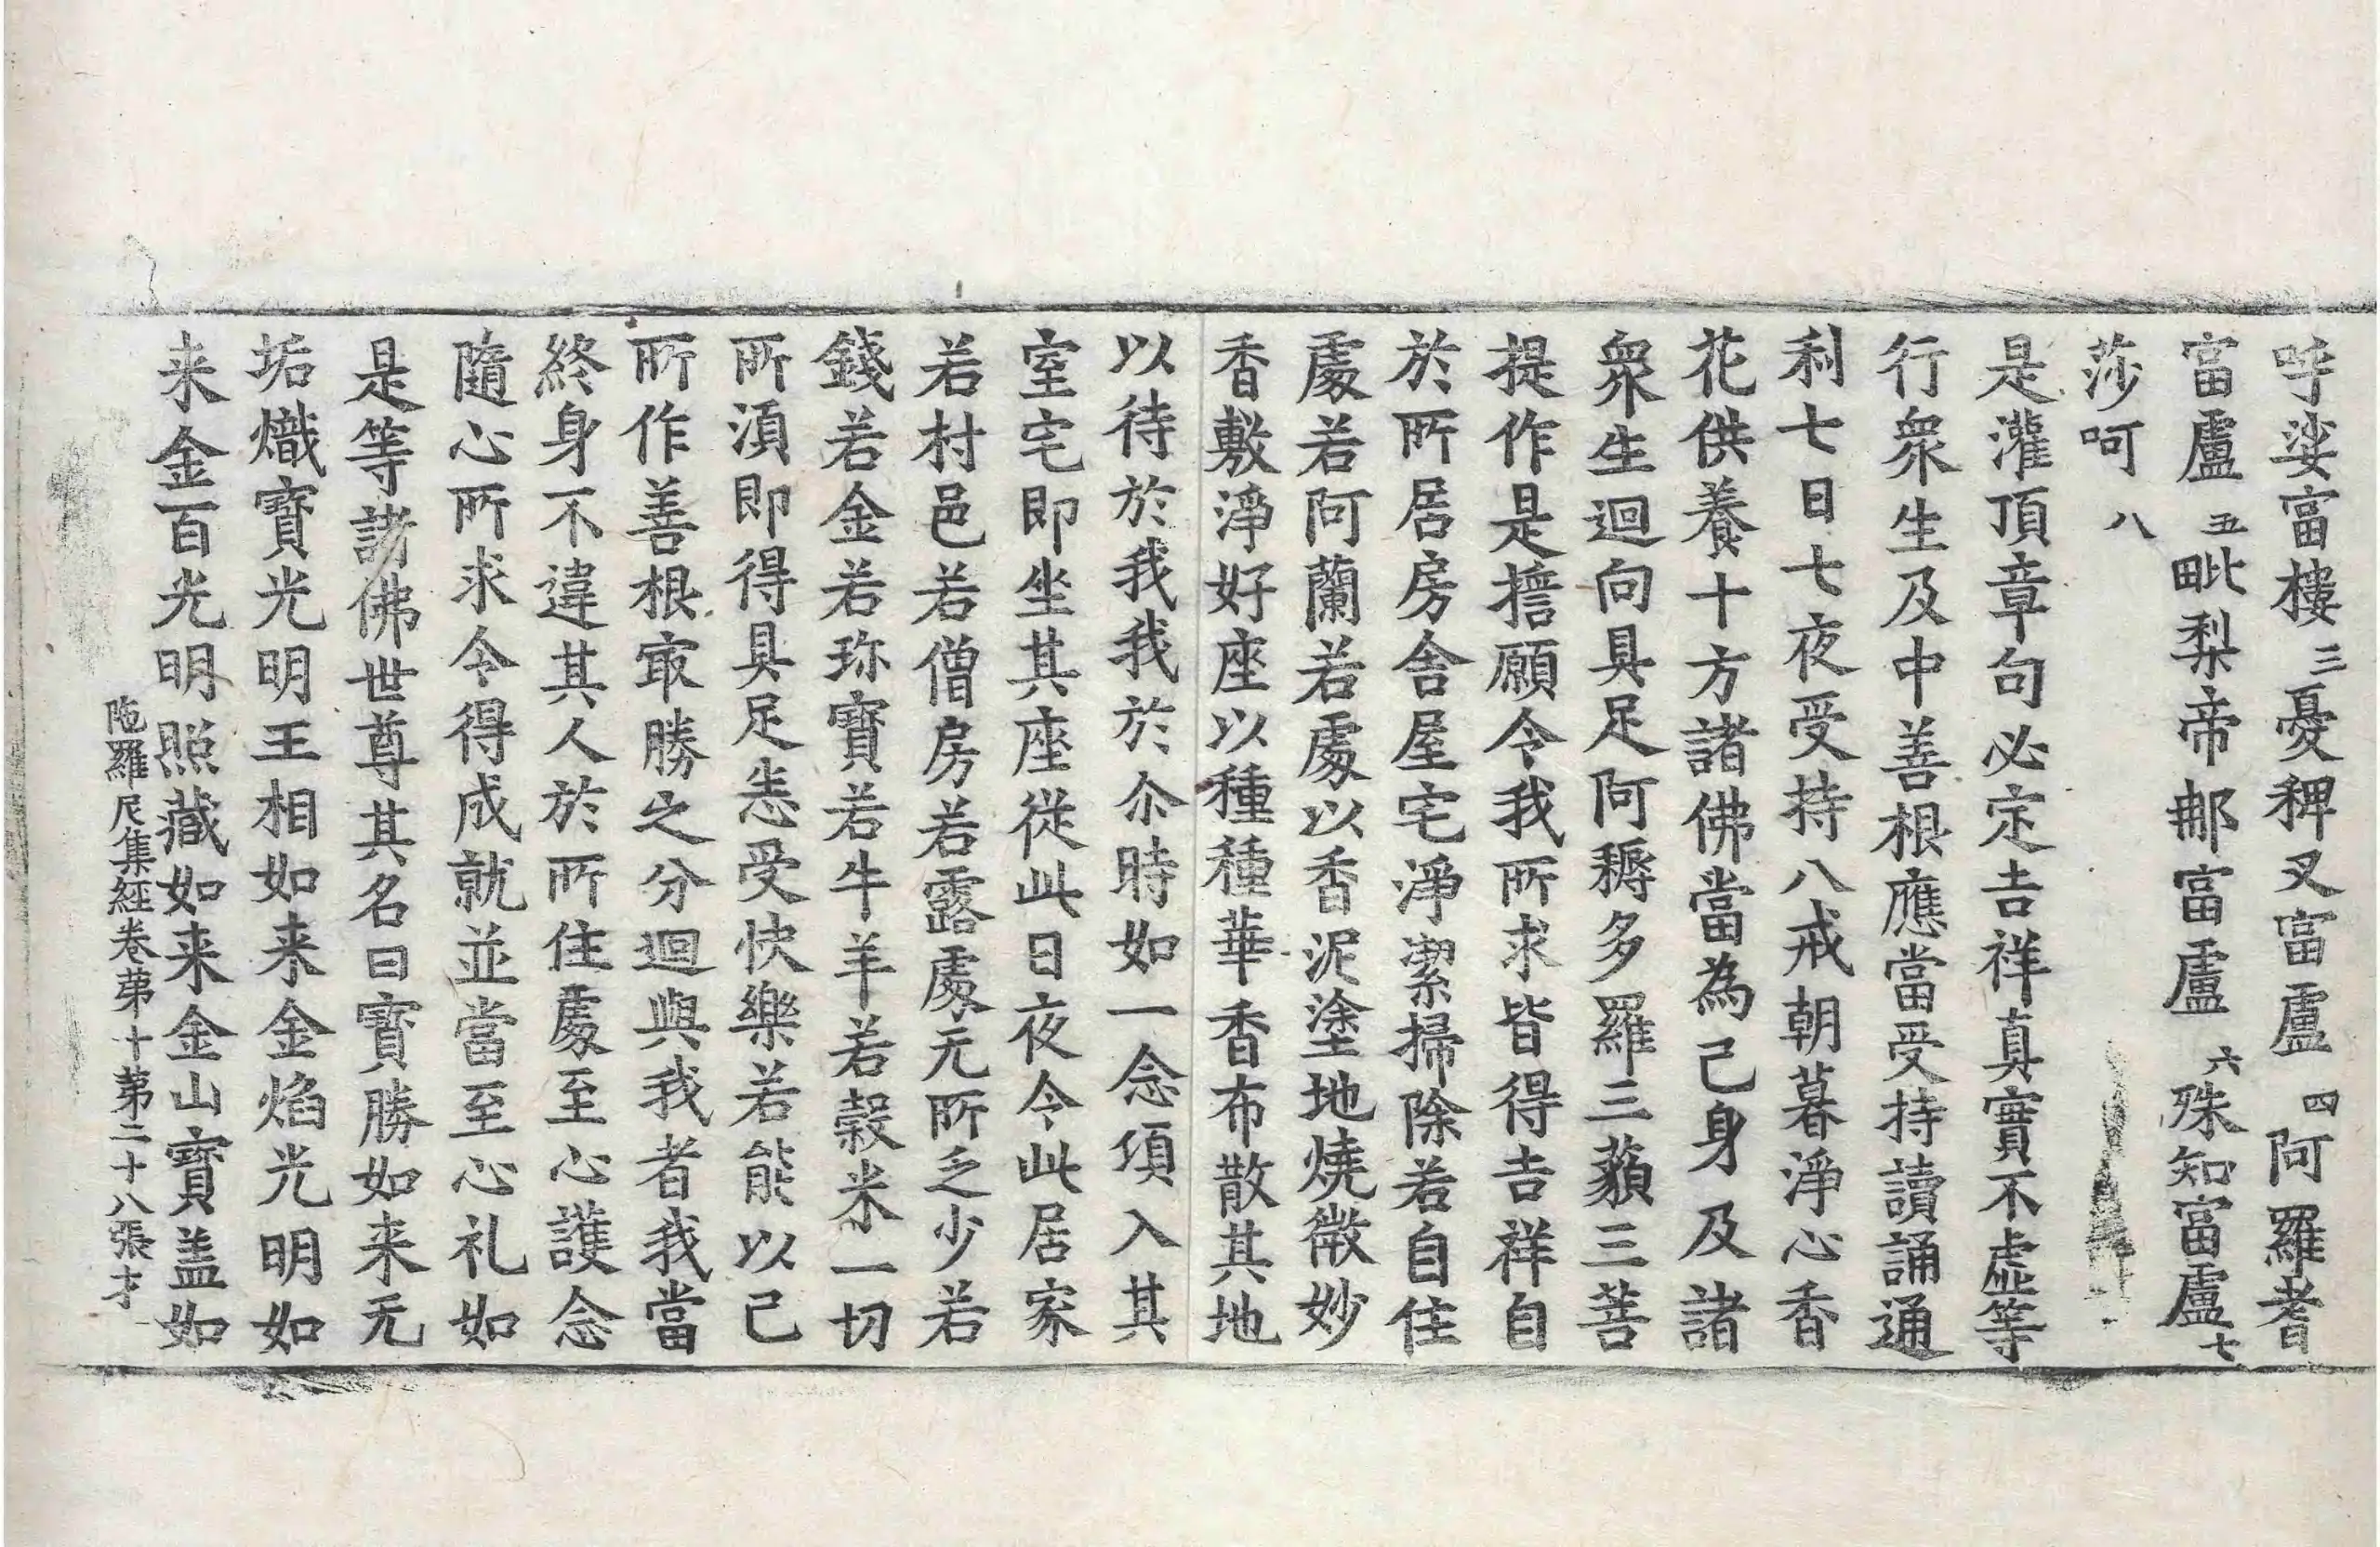 呼娑富樓三憂稗叉富盧四阿羅耆
富盧五毗梨帝那富盧六殊知富盧七
莎呵八
是灌頂章句必定吉祥真實不虛等
行衆生及中善根應當受持讀誦通
利七日七夜受持八戒朝暮淨心香
花供養十方諸佛當為己身及諸
衆生迴向具足阿耨多羅三藐三菩
提作是擔願令我所求皆得吉祥自
於所居房舍屋宅淨潔掃除若自住
處若阿蘭若處以香泥塗地燒微妙
香敷淨好座以種種華香布散其地
以待於我我於尒時如一念須入其
室宅即坐其座從此日夜令此居家
若村邑若僧房若露處无所乏少若
錢若金若珎寶若牛羊若穀米一切
所湏即得具足恙受快樂若能以己
所作善根㝡勝之分迴與我者我當
終身不違其人於所住處至心護念
隨心所求令得成就並當至心礼如
是等諸佛世尊其名曰寳勝如来无
垢熾寳光明王相如来金焰光明如
来金百光明照藏如来金山寳盖如
陁羅尼集經卷苐十苐二十八張才